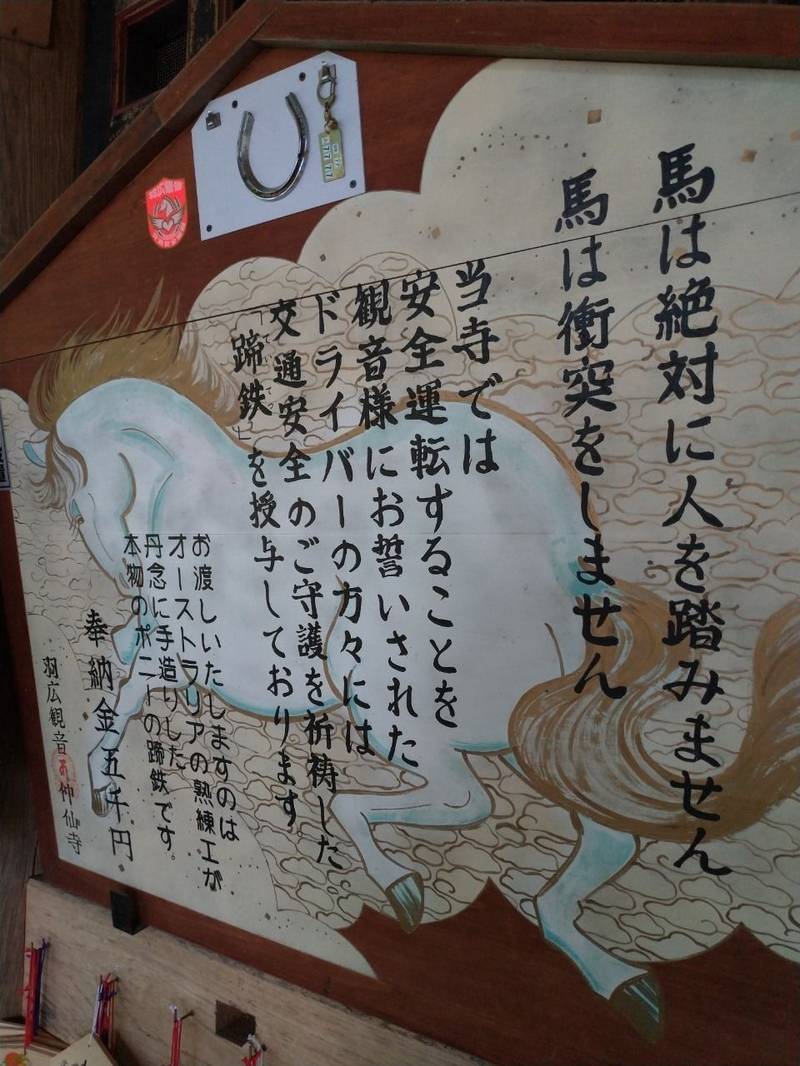 馬は絶対に人を踏みません
馬は衝突をしません
当寺では
安全運転することを
観音様にお誓いされた
ドライバーの方々には
交通安全のご守護を祈祷した
「蹄鉄」を授与しております
お渡しいたしますのは
オーストラリアの熟練工が
丹念に手造りした
本物のポニーの蹄鉄です。
奉納金五千円
羽広観音 仲仙寺